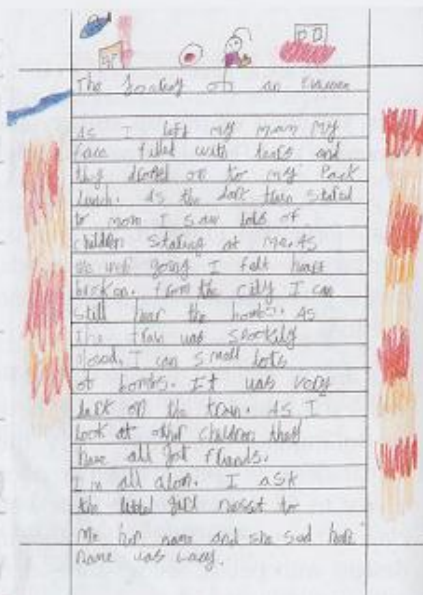 The of an
As I left my mum My
face filled with tears and
they on to my Pack
lunch. As the dark train stated
to move I saw lots of
children stating at Me. As
we were going I felt heart
broken. from the city I can
Still hear the bombs. As
The train was spookily
closed. I can smell lots
of bombs. It was very
dark on the train. As I
look at other children they
have all got friends.
I'm all alon. I ask
the girl to
Me her name and she sad
name was